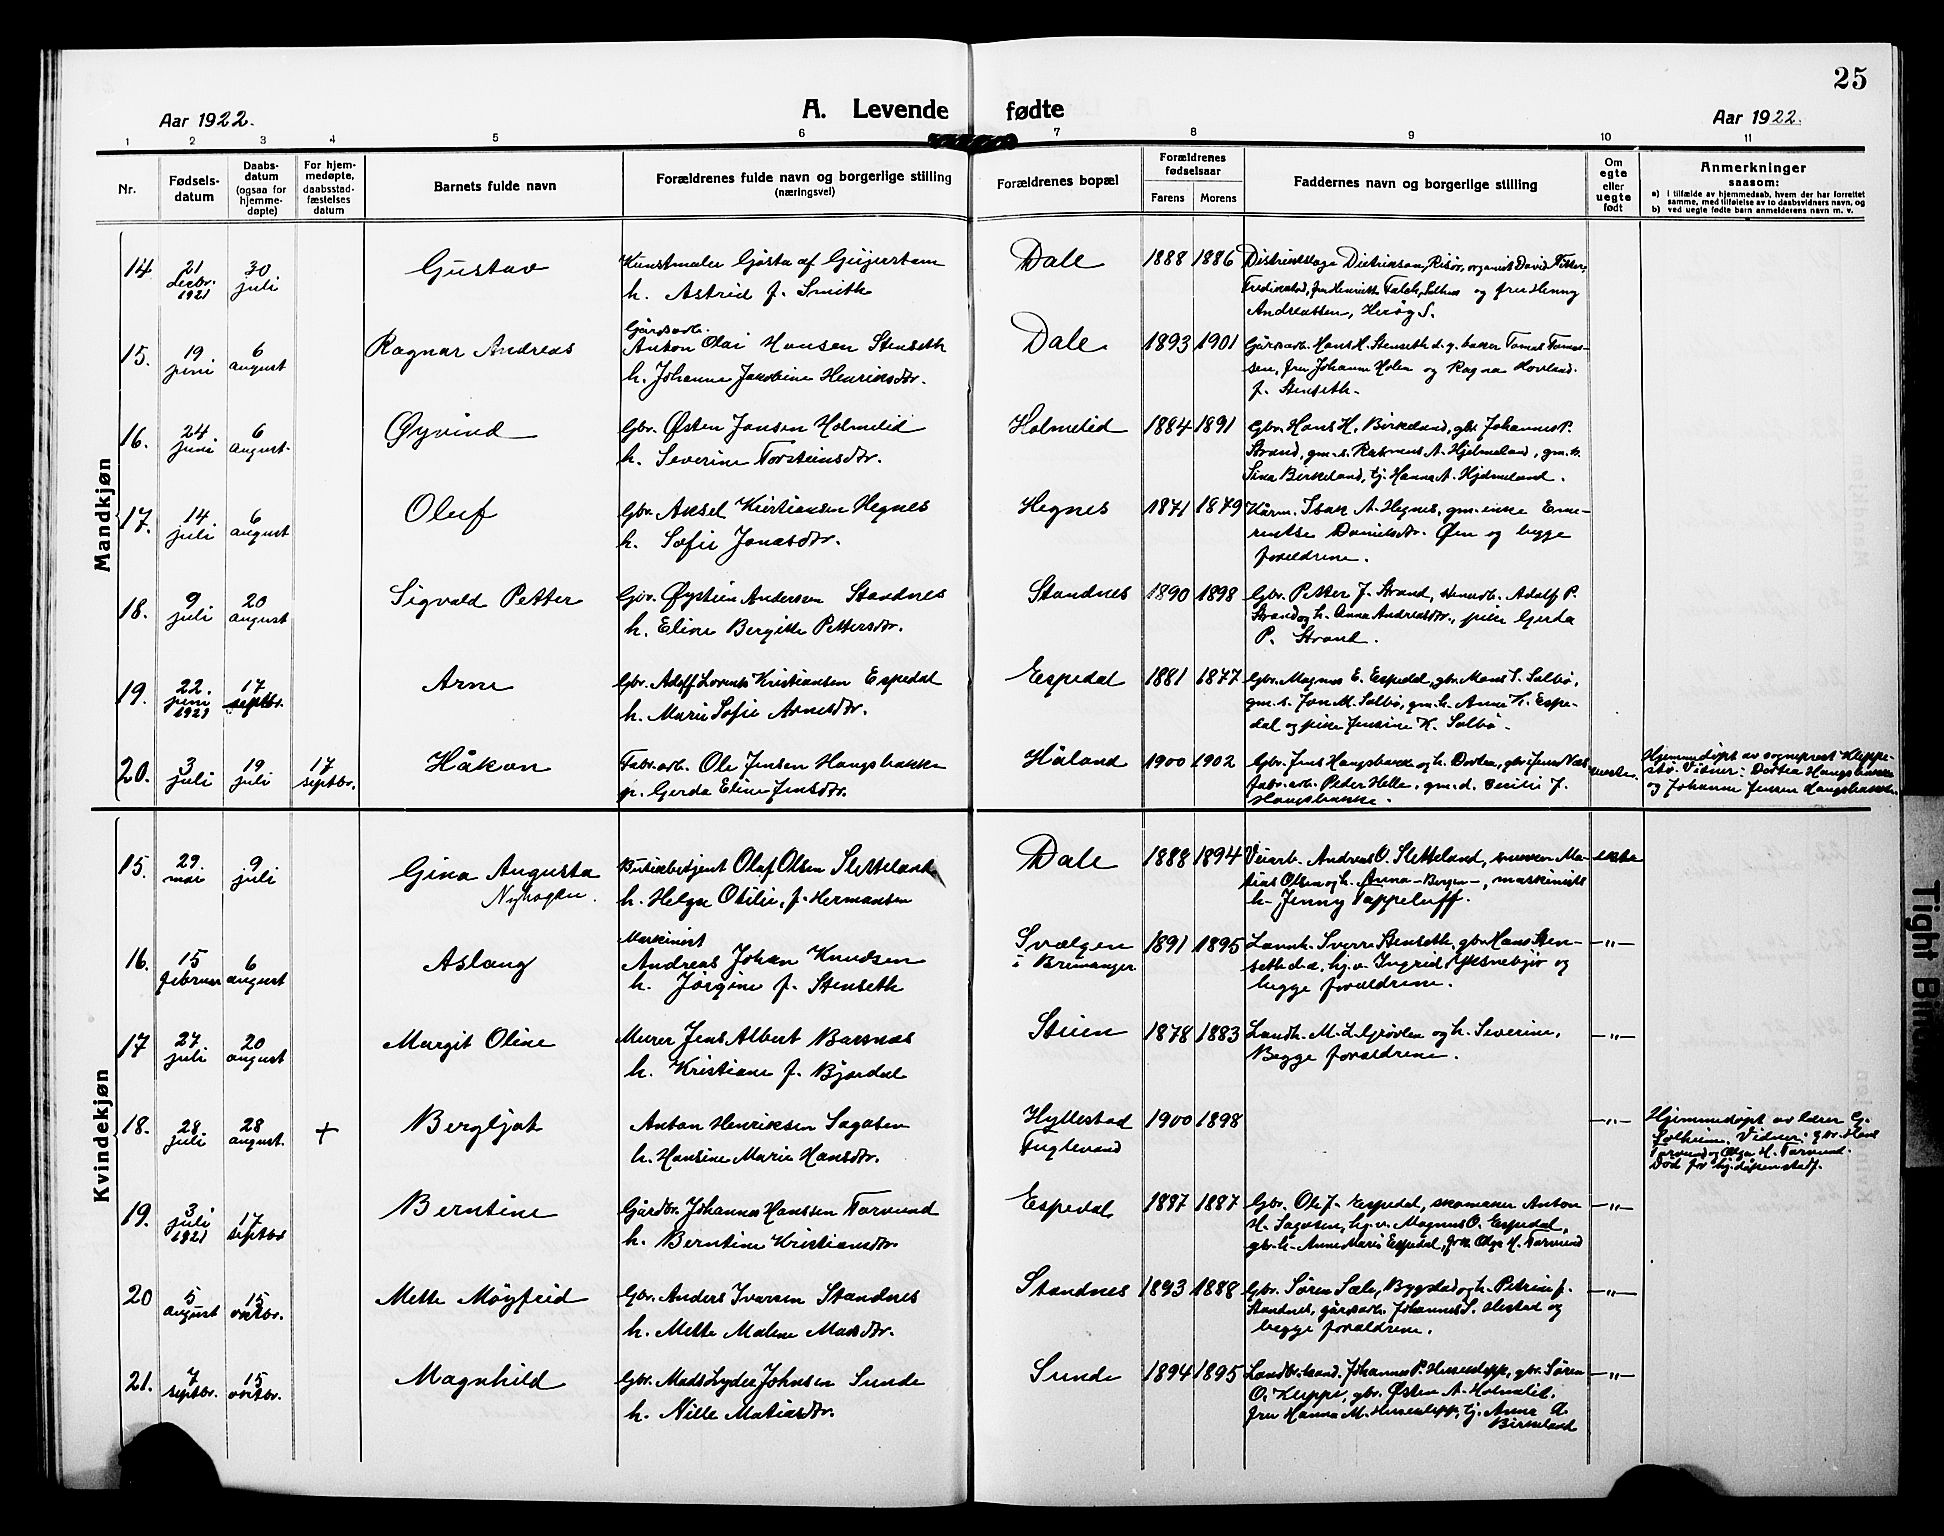 25
A. Levende fødte
Aar 1922.
Aar 1922.
1 2 3 4 5 6 7 8 9 10 11
Nr.
Fødsels-
datum
Daabs-
datum
(ogsaa for
hjemme-
døpte)
For hjem-
medøpte,
daabsstad-
fæstelses
datum
Barnets fulde navn
Forældrenes fulde navn og borgerlige stilling
(næringsvei)
Forældrenes bopæl
Forældrenes
fødselsaar
Farens Morens
Faddernes navn og borgerlige stilling
Om
egte
eller
uegte
født
Anmerkninger
saasom:
a) i tilfælde av hjemmedaab, hvem der har forrettet
samme, med tilføielse av to daabsvidners navn, og
b) ved uegte fødte barn anmelderens navn m. v.
Mandkjøn
14 21 decbr. 1921 30 juli Gustav Kunstmaler Gösta af Geijerstam
h. Astrid f. Smith
Dale 1888 1886
Andreassen
15. 19 juni 6 august Ragnar Andreas Gårdsarb.
Anton Olai Hansen Stenseth
h. Johanne Jakobine Henriksdtr.
Dale. 1893 1901 Gårdarb. Hans H. Stenseth d.y. baker
sen, fru Johanne Holen og Ragna Hovland
f. Stenseth.
16. 24 juni 6 august. Øyvind Gbr. Østen Jonsen Holmelid
h. Severine Torsteinsdtr.
Holmelid 1884 1891 Gbr. Hans H. Birkeland, gbr. Johannes P.
Strand, gm.s. Rasmus A. Hjelmeland, gm.h.
Sina Birkeland, tj. Hanna A. Hjelmeland.
17. 14 juli 6 august Oluf Gbr. Aksel Kristiansen Hegnes
h. Sofie Jonasdtr.
Hegnes 1871 1879 Kårm. Isak A. Hegnes, gm. enke Eme-
rentse Danielsdtr. Øen og begge
forældrene.
18. 9 juli 20 august Sigvald Petter Gbr. Øystein Andersen Standnes
h. Eline Bergitte Pettersdtr.
Standnes 1890 1898 Gbr. Petter J. Strand, Adolf P.
Strand og h. Anna Andreasdtr., pike Gerda
P. Strand.
19. 22. juni 1921 17 septbr. Arne Gbr. Adolf Lorents Kristiansen Espedal
h. Marie Sofie Arnesdtr.
Espedal 1881 1877 Gbr. Magnus E. Espedal, gbr. Mons S. Solbø,
gm.s. Jon M. Solbø, gm.h. Anne K. Espe-
dal og pike Jensine K. Solbø.
20. 3 juli 19 juli 17 septbr. Håkon Fabr.arb. Ole Jensen Haugsbakke
p. Gerda Eline Jensdtr.
Håland 1900 1902 Gbr. Jens Haugsbakke og h. Dortea, gbr. Jens
fabr.arb. Peder Helle, gm.d. Cecilie J.
Haugsbakke.
uegte. Hjemmedøpt av sogneprest Kleppe-
stø. Vidner: Dortea Haugsbakke
og Johanne Jensen Haugsbakke.
Kvindekjøn
15. 29. mai 9 juli Gina Augusta
Nyhagen.
Butikbetjent Olaf Olsen Sletteland
h. Helga Otilie, f. Hermansen
Dale 1888 1894 Veiarb. Andreas O. Sletteland, snekker Ma-
tias Olsen og h. Anna - Bergen -, maskinist
h. Jenny Pappeluff.
egte
16. 15 februar 6 august Aslaug Maskinist
Andreas Johan Knudsen
h. Jørgine f. Stenseth
Svælgen
i Bremanger
1891 1895 Lensm. Sverre Stenseth, gbr. Hans Sten-
seth d.e., hj.v. Ingrid Yksnebjør og
begge forældrene.
-"-
17 27 juli 20 august Margit Oline Murer Jens Albert Barsnæs
h. Kristiane f. Bjordal
Steien 1878 1883 Landh. M. L. Grøvlen og h. Severine,
Begge forældrene.
-"-
18. 28 juli 28 august. + Bergljot Anton Henriksen Sagosen
h. Hansine Marie Hansdtr.
Hyllestad
Fuglevand
1900 1898 -"- Hjemmedøpt av lærer G.
Solheim. Vidner: gbr. Hans
Tarvund og Olga H. Tarvund.
Død før hj.dåpen stadf.
19. 3 juli 1921 17 septbr Berntine Gårdbr. Johannes Hanssen Tarvund
h. Berntine Kristiansdtr.
Espedal 1887 1887 Gbr. Ole J. Espedal, skomaker Anton
H. Sagosen, hj.v. Magnus O. Espedal,
gbr.h. Anne Marie Espedal, frk. Olga H. Tarvund
-"-
20 5 august 15 oktbr. Mette Møyfrid Gbr. Anders Ivarsen Standnes
h. Mette Malene Madsdtr.
Standnes 1893 1888 Gbr. Søren Sæle, Bygstad og h. Petrine f.
Standnes, gårdsarb. Johannes S. Alestad og
begge forældrene.
-"-
21. 7 septbr. 15 oktbr. Magnhild Gbr. Mads Lyder Johnsen Sunde
h. Nille Matiasdtr.
Sunde 1894 1895 Johannes P. Hessenlepp, gbr. Søren
O. Kleppe, gbr. Østen A. Holmelid,
fru Hanna M. Hessenlepp, tj. Anna A.
Birkeland
-"-
Tight Bin